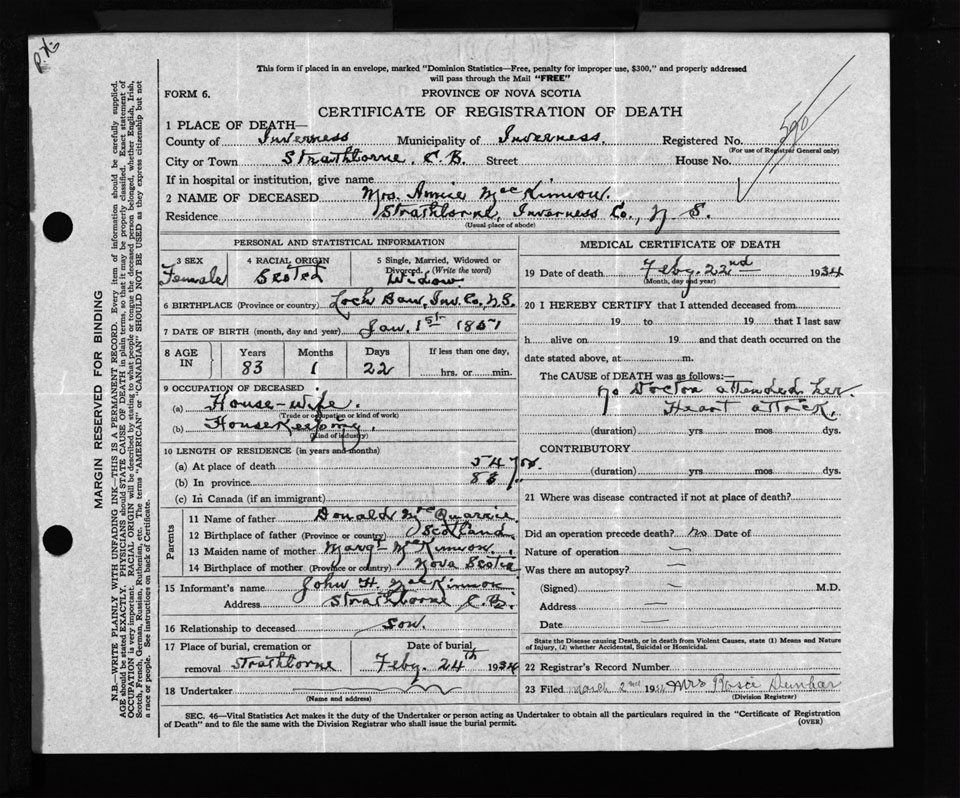 This form if placed in an envelope, marked "Dominion Statistics—Free, penalty for improper use, $300," and properly addressed
will pass through the Mail "FREE"
FORM 6.
PROVINCE OF NOVA SCOTIA
CERTIFICATE OF REGISTRATION OF DEATH
590
1 PLACE OF DEATH—
County of Inverness Municipality of Inverness. Registered No.
(For use of Registrar General only)
City or Town Strathlorne. C.B. Street House No.
If in hospital or institution, give name
2 NAME OF DECEASED Mrs. Annie MacKinnon.
Residence Strathlorne, Inverness Co., N. S.
(Usual place of abode)
PERSONAL AND STATISTICAL INFORMATION
3 SEX Female
4 RACIAL ORIGIN Scotch
5 Single, Married, Widowed or Divorced. (Write the word) Widow
6 BIRTHPLACE (Province or country) Loch Ban, Inv. Co., N.S.
7 DATE OF BIRTH (month, day and year) Jan. 1st 1851
8 AGE IN
Years Months Days If less than one day,
83 1 22 hrs. or min.
9 OCCUPATION OF DECEASED
(a) House-wife.
(Trade or occupation or kind of work)
(b) HouseKeeping.
(Kind of industry)
10 LENGTH OF RESIDENCE (in years and months)
(a) At place of death 54 yrs.
(b) In province 83 "
(c) In Canada (if an immigrant)
Parents
11 Name of father Donald McQuarrie
12 Birthplace of father (Province or country) Scotland
13 Maiden name of mother Margt McKinnon.
14 Birthplace of mother (Province or country) Nova Scotia
15 Informant's name John H. MacKinnon
Address Strathlorne C.B.
16 Relationship to deceased son.
17 Place of burial, cremation or removal Strathlorne
Date of burial Feby. 24th 1934
18 Undertaker
(Name and address)
MEDICAL CERTIFICATE OF DEATH
19 Date of death Feby. 22nd 1934
(Month, day and year)
20 I HEREBY CERTIFY that I attended deceased from
19 to 19 that I last saw
h alive on 19 and that death occurred on the
date stated above, at m.
The CAUSE OF DEATH was as follows:—
No Doctor attended her.
Heart attack.
(duration) yrs mos dys.
CONTRIBUTORY
(duration) yrs mos dys.
21 Where was disease contracted if not at place of death?
Did an operation precede death? no Date of
Nature of operation —
Was there an autopsy? —
(Signed) — M.D.
Address —
Date —
State the Disease causing Death, or in death from Violent Causes, state (1) Means and Nature
of Injury, (2) whether Accidental, Suicidal or Homicidal.
22 Registrar's Record Number
23 Filed March 2nd 1934 Mrs Dunbar
(Division Registrar)
SEC. 46—Vital Statistics Act makes it the duty of the Undertaker or person acting as Undertaker to obtain all the particulars required in the "Certificate of Registration
of Death" and to file same with the Division Registrar who shall issue the burial permit.
(OVER)
MARGIN RESERVED FOR BINDING
N.B.—WRITE PLAINLY WITH UNFADING INK—THIS IS A PERMANENT RECORD. Every item of information should be carefully supplied.
AGE should be stated EXACTLY. PHYSICIANS should STATE CAUSE OF DEATH in plain terms, so that it may be properly classified. Exact statement of
OCCUPATION is very important. RACIAL ORIGIN will be described by stating to what people or tongue the deceased person belonged, whether English, Irish,
Scotch, French, German, Russian, Ruthenian, etc. The terms "AMERICAN" or "CANADIAN" SHOULD NOT BE USED as they express citizenship but not
a race or people. See instructions on back of Certificate.